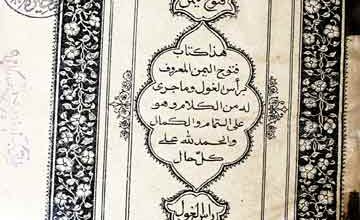 فتوح اليمن
هذا كتاب
فتوح اليمن المعروف
برأس لغول وماجرى
له من الكلام وهو
على التمام والكمال
والحمد لله على
كل حال
رأس الغول